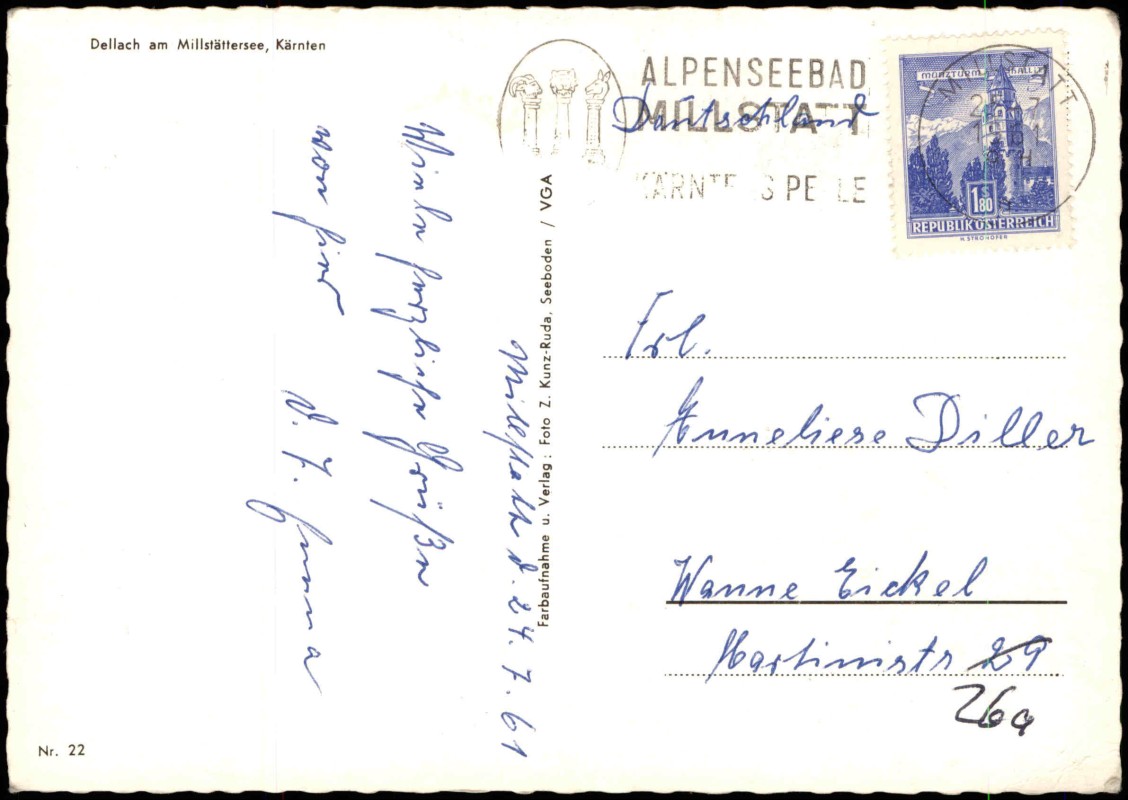 Dellach am Millstättersee, Kärnten
ALPENSEEBAD
MILLSTATT
KÄRNTENS PERLE
Deutschland
MILLSTATT
MÜNZTURM HALL
1 S 80
REPUBLIK ÖSTERREICH
Millstatt d. 24. 7. 61
Viele herzliche Grüße
von hier
Farbaufnahme u. Verlag: Foto Z. Kunz-Ruda, Seeboden / VGA
Frl.
Anneliese Diller
Wanne Eickel
Martinistr 29
26a
Nr. 22